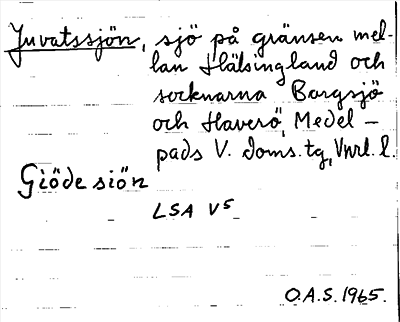 Juvatssjön, sjö på gränsen mel-
lan Hälsingland och
socknarna Borgsjö
och Haverö, Medel-
pads V. doms. tg, Vnrl. l.
Giöde siön
LSA V5
O.A.S. 1965.